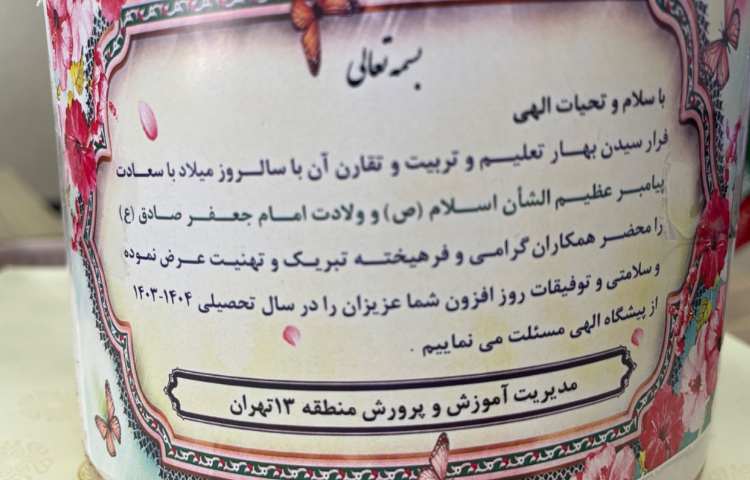 بسمه تعالی
با سلام و تحیات الهی
فرار سیدن بهار تعلیم و تربیت و تقارن آن با سالروز میلاد با سعادت
پیامبر عظیم الشأن اسلام (ص) و ولادت امام جعفر صادق (ع)
را محضر همکاران گرامی و فرهیخته تبریک و تهنیت عرض نموده
و سلامتی و توفیقات روز افزون شما عزیزان را در سال تحصیلی ۱۴۰۴-۱۴۰۳
از پیشگاه الهی مسئلت می نماییم .
مدیریت آموزش و پرورش منطقه ۱۳تهران